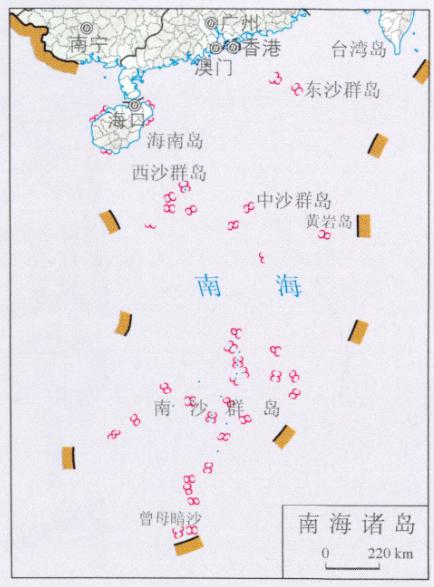 广州
南宁
香港
澳门
台湾岛
东沙群岛
海口
海南岛
西沙群岛
中沙群岛
黄岩岛
南 海
南 沙 群 岛
曾母暗沙
南海诸岛
0 220 km